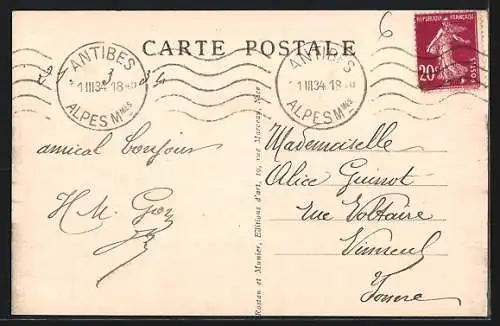 6
CARTE POSTALE
REPUBLIQUE FRANÇAISE
20c
POSTES
ANTIBES
1 III 34 18
ALPES Mmes
ANTIBES
1 III 34 18
ALPES Mmes
3
amical bonjour
H M.
Rostan et Munier, Editions d'art, 19, rue Marceau, Nice
Mademoiselle
Alice Guinot
Rue Voltaire
Yonne